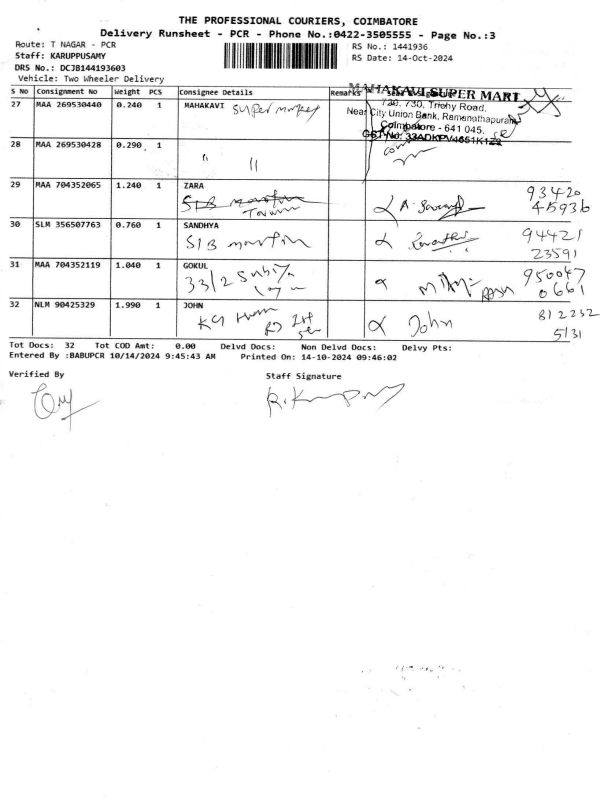 THE PROFESSIONAL COURIERS, COIMBATORE
Delivery Runsheet - PCR - Phone No.:0422-3505555 - Page No.:3
Route: T NAGAR - PCR
RS No.: 1441936
Staff: KARUPPUSAMY
RS Date: 14-Oct-2024
DRS No.: DCJB144193603
Vehicle: Two Wheeler Delivery
S No Consignment No Weight PCS Consignee Details Remarks
MAHAKAVI SUPER MART
729, 730, Trichy Road,
Near City Union Bank, Ramanathapuram,
Coimbatore - 641 045.
GST No: 33ADKPV4651K1Z2
27 MAA 269530440 0.240 1 MAHAKAVI Super market
28 MAA 269530428 0.290 1
" "
29 MAA 704352065 1.240 1 ZARA
93420
45936
30 SLM 356507763 0.760 1 SANDHYA
94421
23591
31 MAA 704352119 1.040 1 GOKUL
33/2
950047
0661
32 NLM 90425329 1.990 1 JOHN
John
812232
5131
Tot Docs: 32 Tot COD Amt: 0.00 Delvd Docs: Non Delvd Docs: Delvy Pts:
Entered By :BABUPCR 10/14/2024 9:45:43 AM Printed On: 14-10-2024 09:46:02
Verified By
Staff Signature